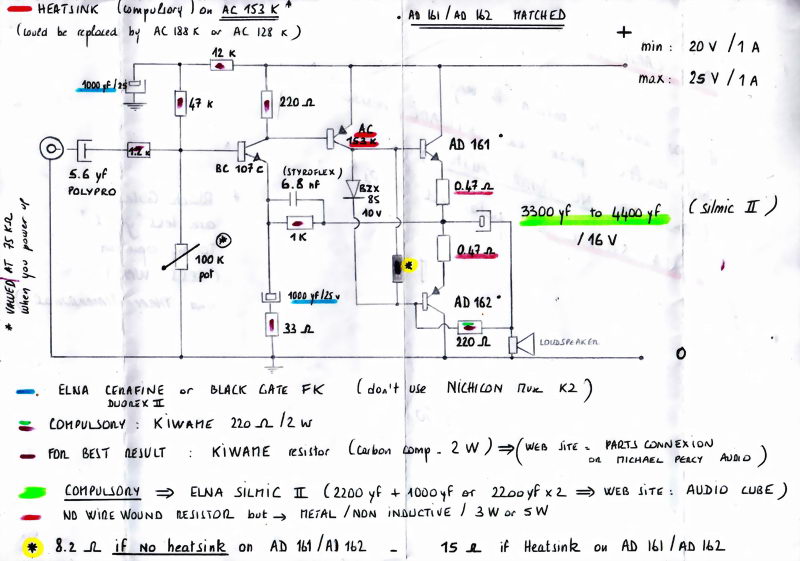 HEATSINK (compulsory) on AC 153 K *
(could be replaced by AC 188 K or AC 128 K)
• AD 161/AD 162 MATCHED
+
min : 20 V / 1 A
max : 25 V / 1 A
12 K
1000 yF/25
47 K
220 Ω
AC
153 K
AD 161 *
1.2 K
BC 107 C
5.6 yF
POLYPRO
(STYROFLEX)
6.8 nF
BZX
85
10V
0.47 Ω
3300 yF to 4400 yF (Silmic II)
/ 16 V
1K
0.47 Ω
* VALUED AT 75 KΩ
when you power up
*
100 K
pot
*
1000 yF/25 v
AD 162 *
33 Ω
220 Ω
LOUDSPEAKER
0
ELNA CERAFINE or BLACK GATE FK (don't use NICHICON Muse KZ)
DUOREX II
COMPULSORY : KIWAME 220 Ω / 2 W
FOR BEST RESULT : KIWAME resistor (Carbon Comp - 2 W) ⇒ (WEB SITE : PARTS CONNEXION
OR MICHAEL PERCY AUDIO)
COMPULSORY ⇒ ELNA SILMIC II (2200 yF + 1000 yF or 2200 yF x 2 ⇒ WEB SITE : AUDIO CUBE)
NO WIRE WOUND RESISTOR but → METAL / NON INDUCTIVE / 3 W or 5 W
* 8.2 Ω if No heatsink on AD 161 / AD 162 - 15 Ω if Heatsink on AD 161 / AD 162